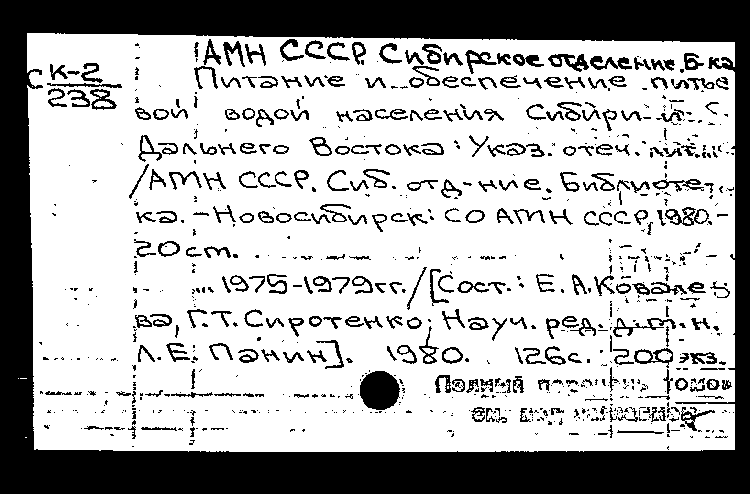 АМН СССР. Сибирское отделение. Б-ка
СК-2
238
Питание и обеспечение питье
вой водой населения Сибири и
Дальнего Востока: Указ. отеч. лит...
/АМН СССР. Сиб. отд-ние. Библиоте
ка. - Новосибирск: СО АМН СССР, 1980. -
20 см.
... 1975-1979 гг. / [Сост.: Е. А. Ковале
ва, Г. Т. Сиротенко; Науч. ред. д.м.н.
Л. Е. Панин]. 1980. 126 с. 200 экз.
Полный перечень томов
см. под названием